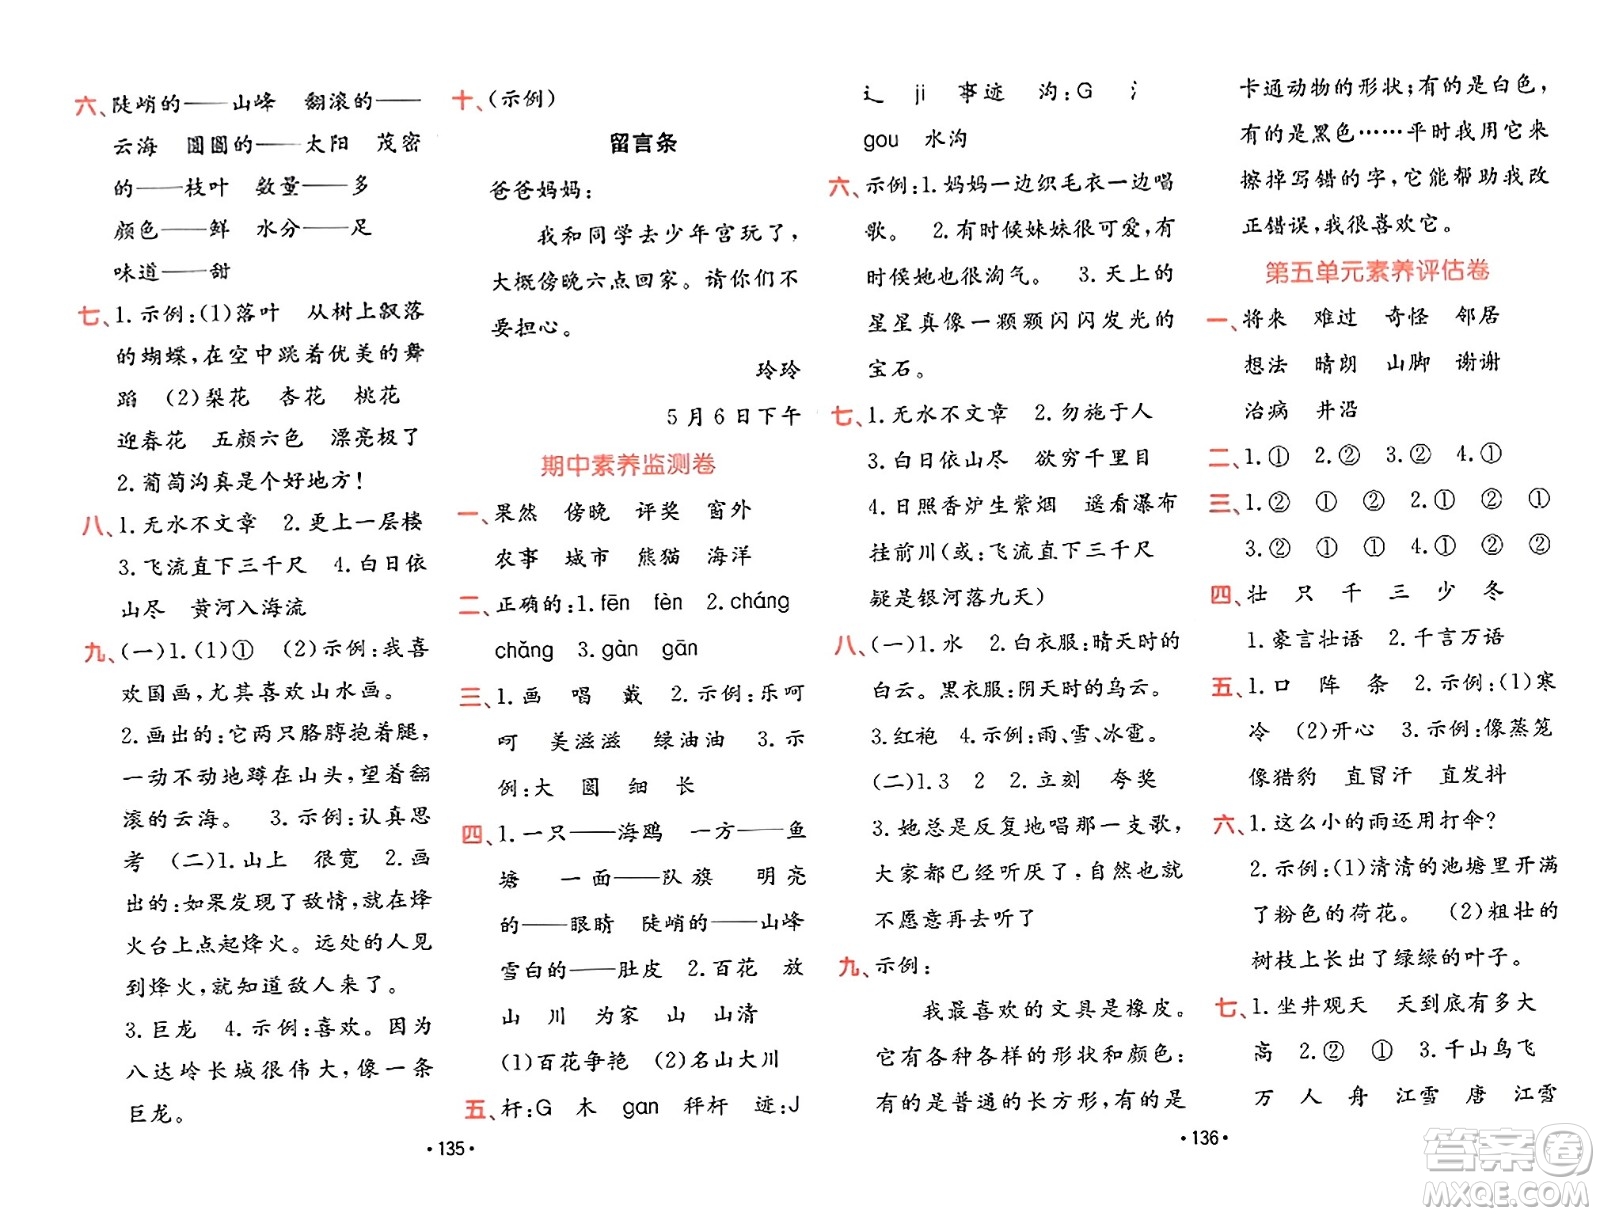 六、陡峭的——山峰　翻滚的——
云海　圆圆的——太阳　茂密
的——枝叶　数量——多
颜色——鲜　水分——足
味道——甜
七、1.示例:(1)落叶　从树上飘落
的蝴蝶,在空中跳着优美的舞
蹈　(2)梨花　杏花　桃花
迎春花　五颜六色　漂亮极了
2.葡萄沟真是个好地方!
八、1.无水不文章　2.更上一层楼
3.飞流直下三千尺　4.白日依
山尽　黄河入海流
九、(一)1.(1)①　(2)示例:我喜
欢国画,尤其喜欢山水画。
2.画出的:它两只胳膊抱着腿,
一动不动地蹲在山头,望着翻
滚的云海。　3.示例:认真思
考　(二)1.山上　很宽　2.画
出的:如果发现了敌情,就在烽
火台上点起烽火。远处的人见
到烽火,就知道敌人来了。
3.巨龙　4.示例:喜欢。因为
八达岭长城很伟大,像一条
巨龙。
十、(示例)
留言条
爸爸妈妈:
我和同学去少年宫玩了,
大概傍晚六点回家。请你们不
要担心。
玲玲
5月6日下午
期中素养监测卷
一、果然　傍晚　评奖　窗外
农事　城市　熊猫　海洋
二、正确的:1.fēn　fèn　2.cháng
chǎng　3.gàn　gān
三、1.画　唱　戴　2.示例:乐呵
呵　美滋滋　绿油油　3.示
例:大　圆　细　长
四、1.一只——海鸥　一方——鱼
塘　一面——队旗　明亮
的——眼睛　陡峭的——山峰
雪白的——肚皮　2.百花　放
山　川　为家　山　山清
(1)百花争艳　(2)名山大川
五、杆:G　木　gan　秤杆　迹:J
·135·
辶　ji　事迹　沟:G　氵
gou　水沟
六、示例:1.妈妈一边织毛衣一边唱
歌。　2.有时候妹妹很可爱,有
时候她也很淘气。　3.天上的
星星真像一颗颗闪闪发光的
宝石。
七、1.无水不文章　2.勿施于人
3.白日依山尽　欲穷千里目
4.日照香炉生紫烟　遥看瀑布
挂前川(或:飞流直下三千尺
疑是银河落九天)
八、(一)1.水　2.白衣服:晴天时的
白云。黑衣服:阴天时的乌云。
3.红袍　4.示例:雨、雪、冰雹。
(二)1.3　2　2.立刻　夸奖
3.她总是反复地唱那一支歌,
大家都已经听厌了,自然是
不愿意再去听了
九、示例:
我最喜欢的文具是橡皮。
它有各种各样的形状和颜色:
有的是普通的长方形,有的是
卡通动物的形状;有的是白色,
有的是黑色……平时我用它来
擦掉写错的字,它能帮助我改
正错误,我很喜欢它。
第五单元素养评估卷
一、将来　难过　奇怪　邻居
想法　晴朗　山脚　谢谢
治病　井沿
二、1.①　2.②　3.②　4.①
三、1.②　①　②　2.①　②　①
3.②　①　①　4.①　②　②
四、壮　只　千　三　少　冬
1.豪言壮语　2.千言万语
五、1.口　阵　条　2.示例:(1)寒
冷　(2)开心　3.示例:像蒸笼
像猎豹　直冒汗　直发抖
六、1.这么小的雨还用打伞?
2.示例:(1)清清的池塘里开满
了粉色的荷花。　(2)粗壮的
树枝上长出了绿绿的叶子。
七、1.坐井观天　天到底有多大
高　2.②　①　3.千山鸟飞
万　人　舟　江雪　唐　江雪
·136·
答案圈
MXQE.COM